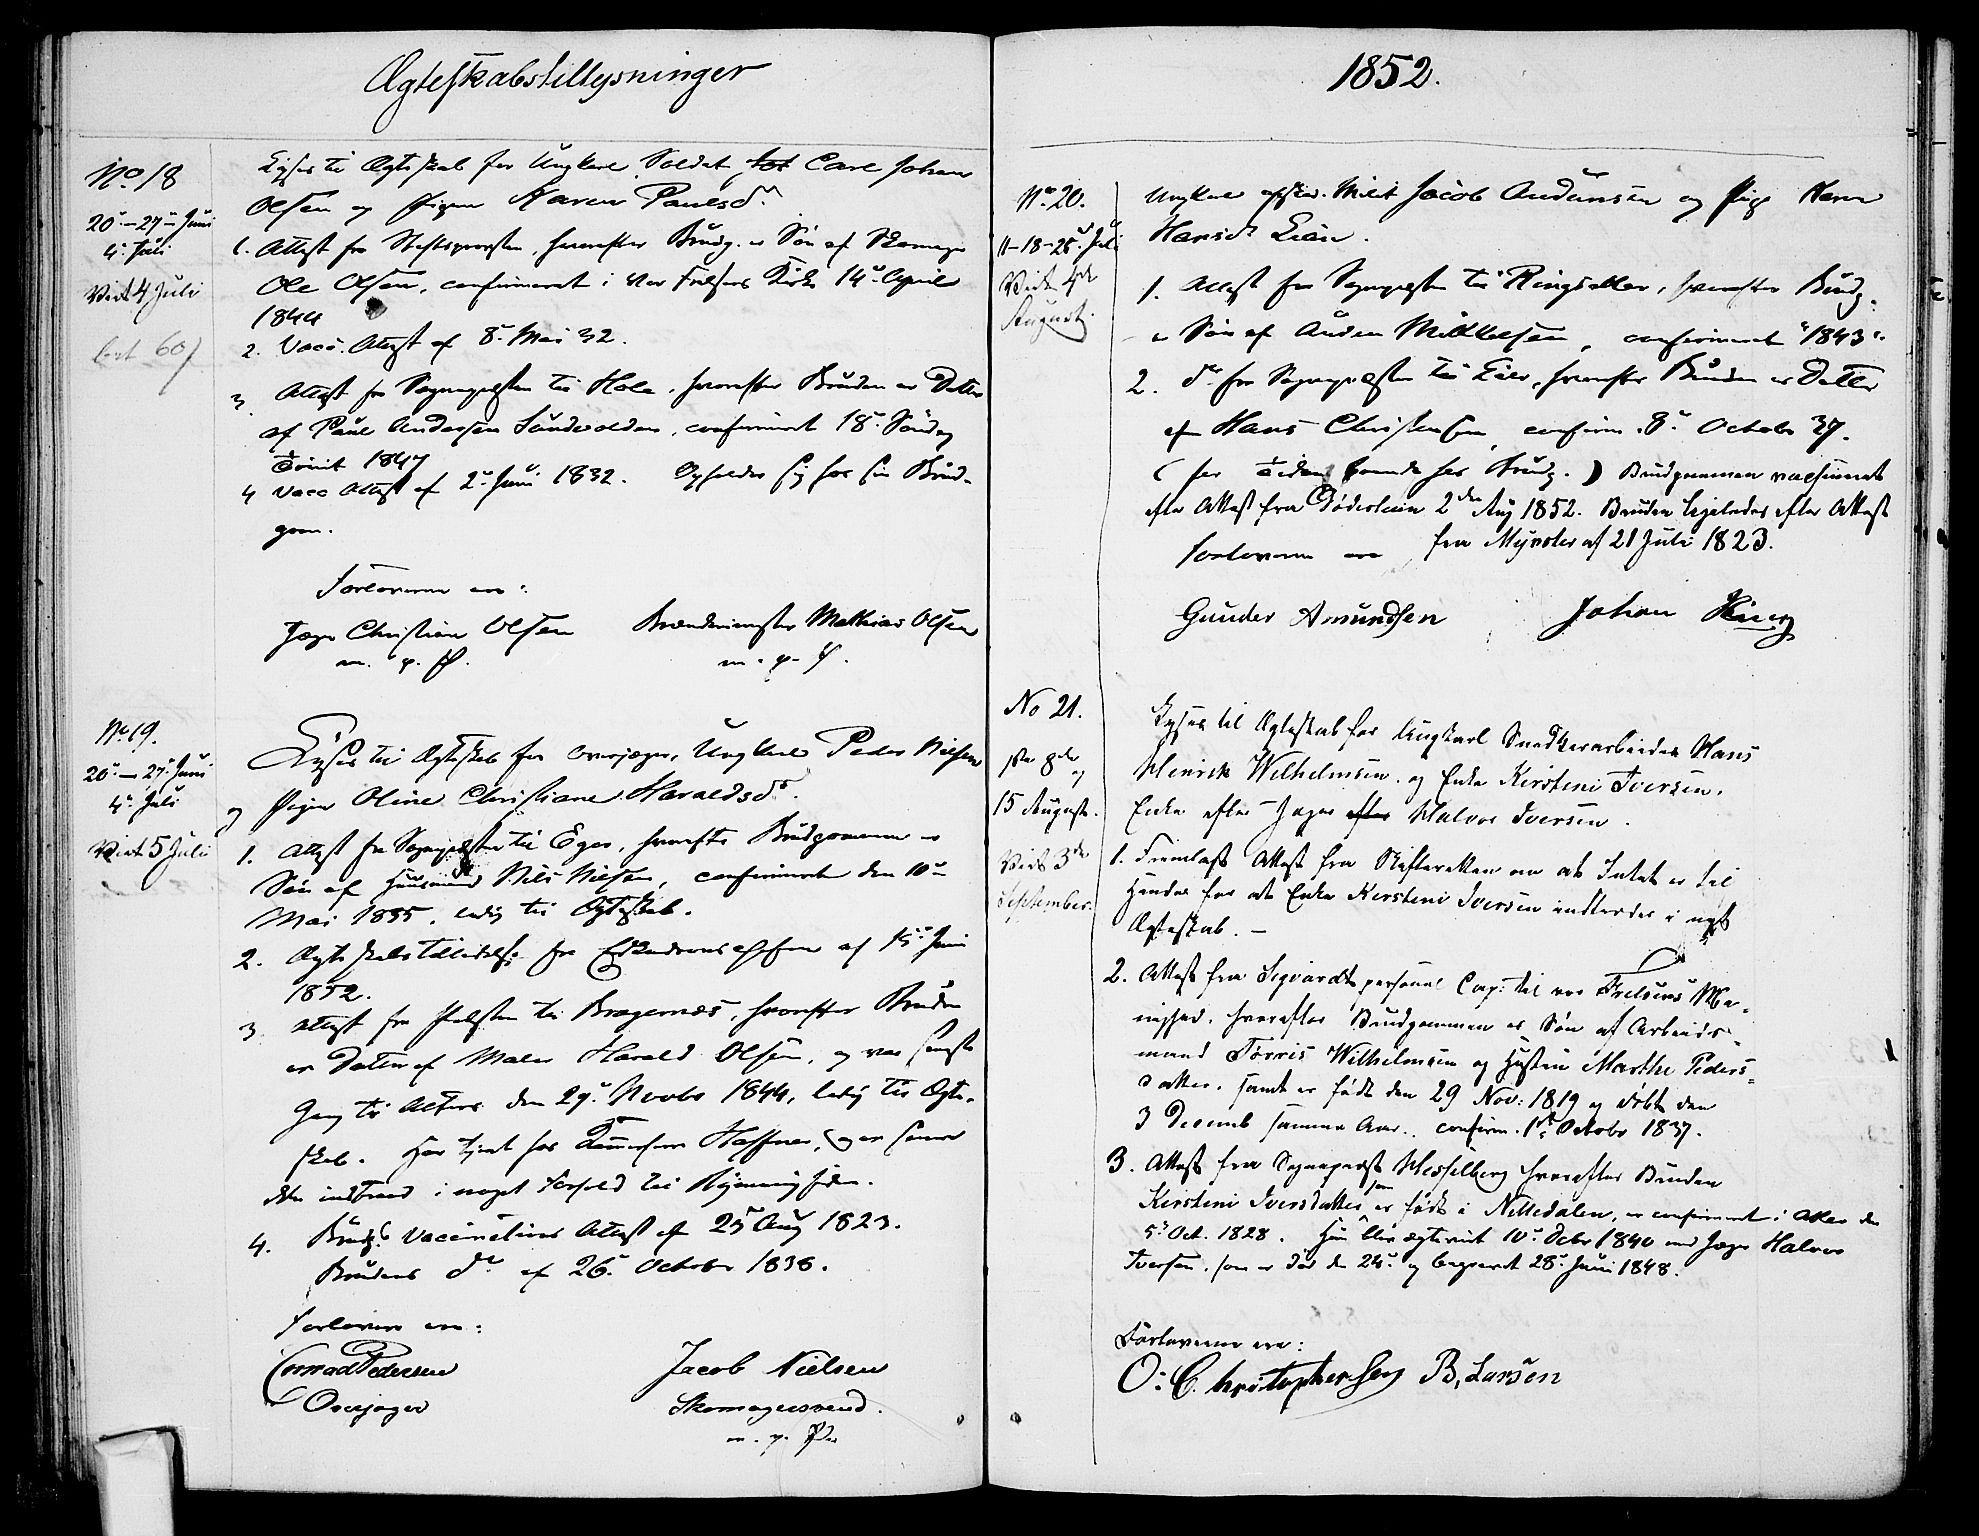 Ægteskabstillysninger
No 18
20de-27de Juni
4de Juli
Viet 4 Juli
Lyses til Ægteskab for Ungkarl Soldat Carl Johan
Olsen og Pigen Karen Paulsd.
1. Attest fra Stiftsprovsten, hvorefter Brudg. er Søn af Skomager
Ole Olsen, confirmeret i Vor Frelsers Kirke 14de April
1844
2. Vacc. Attest af 8de Mai 32.
3. Attest fra Sognepresten til Hole, hvorefter Bruden er Datter
af Paul Andersen Sundvolden, confirmeret 18de Søndag
Trinit 1847
4 Vacc Attest af 2de Juni 1832. Opholder sig hos sin Brud-
gom.
Forloverne ere:
Jæger Christian Olsen
m. p. P.
Mathias Olsen
m. p. P.
No 19.
20de-27de Juni
4de Juli
Viet 5 Juli
Lyses til Ægteskab for Overjæger, Ungkarl Peder Nielsen
og Pigen Oline Christiane Haraldsd.
1. Attest fra Sognepresten til Eger, hvorefter Brudgommen er
Søn af Huusmand Nils Nielsen, confirmeret den 10de
Mai 1835, ledig til Ægteskab.
2. Ægteskabstilladelse fra Eskadronschefen af 15de Juni
1852.
3 Attest fra Presten til Bragernæs, hvorefter Bruden
er Datter af Maler Harald Olsen, og var sidste
Gang til Alters den 29de Novbr 1844, ledig til Ægte-
skab. Har tjent hos Haffner, og er senere
ikke indtraad i noget Forhold til Rygning siden.
4. Brudg. Vaccinations Attest af 25 Aug 1823.
Brudens do af 26de October 1836.
Forlovere ere:
Conrad Pedersen
Overjæger
Jacob Nielsen
Skomagersvend.
m. p. P.
1852.
No 20.
11-18-25de Juli
Viet 4de
August.
Ungkarl Milit Jacob Andunsen og Pige Karen
Hansdr Lian.
1. Attest fra Sognepresten til Ringsaker, hvorefter Brudg.
er Søn af Auden Mikkelsen, confirmeret 1843.
2. do fra Sognepresten til Lier, hvorefter Bruden er Datter
af Hans Christensen, confirm. 8de October 37.
( hos Brudg.) Brudgommen vaccineret
efter Attest fra Døderlein 2den Aug 1852. Bruden ligeledes efter Attest
fra af 21 Juli 1823.
Forloverne ere
Gunder Amundsen
Johan
No 21.
1ste 8de og
15 August.
Viet 3de
September.
Lyses til Ægteskab for Ungkarl Snedkerarbeider Hans
Henrik Wilhelmsen og Enke Kirstine Iversen,
Enke efter Jæger Halvor Iversen.
1. Fremlagt Attest fra Skifteretten om at Intet er til
Hinder for at Enke Kirstine Iversen indtræder i nyt
Ægteskab. -
2. Attest fra Sigvardt personel Cap: til vor Frelsers Me-
nighed, hvorefter Brudgommen er Søn af Arbeids-
mand Torris Wilhelmsen og Hustru Marthe Peders-
datter, samt er født den 29 Nov: 1819 og døbt den
3 Decemb samme Aar. confirm. 1ste Octobr 1837.
3. Attest fra Sognepræst Hesselberg hvorefter Bruden
Kirstine Iversdatter som er født i Nittedalen, er confirmeret i Aker den
5te Oct. 1828. Hun blev ægteviet 10de Octbr 1840 med Jæger Halvor
Iversen, som er død den 24de og begravet 28de Juni 1848.
Forloverne ere:
O: Christophersen B, Larsen